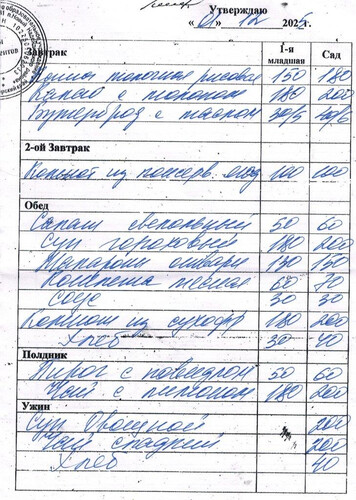 Утверждаю
« 01 » 12 202
1-я младшая Сад
Завтрак
Каша молочная рисовая 150 180
Какао с молоком 180 200
Бутерброд с маслом 30/5 40/5
2-ой Завтрак
Компот из консерв. 100 100
Обед
Салат свекольный 50 60
Суп гороховый 180 200
Макароны отварн 130 150
Котлета 60 70
соус 30 30
Компот из сухофр 180 200
Хлеб 30 40
Полдник
Пирог с повидлом 50 60
Чай с лимоном 180 200
Ужин
Суп Овощной 200
Чай сладкий 200
Хлеб 40